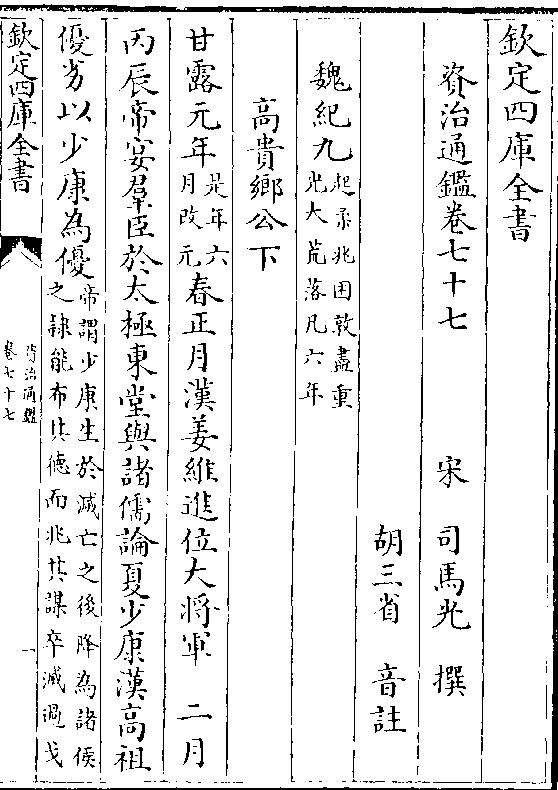 欽定四庫全書
資治通鑑卷七十七
宋 司馬光 撰
胡三省 音註
魏紀九起柔兆困敦盡重
光大荒落凡六年
高貴鄉公下
甘露元年是年六
月改元春正月漢姜維進位大將軍 二月
丙辰帝宴羣臣於太極東堂與諸儒論夏少康漢高祖
優劣以少康為優帝謂少康生於滅亡之後降為諸侯
之隷能布其德而兆其謀卒滅過戈
欽定四庫全書
資治通鑑
卷七十七
一